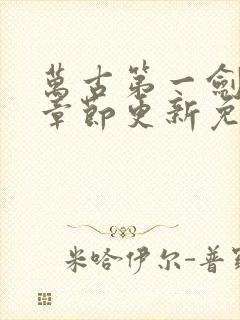 萬古第一劍
章節更新免
米哈伊尔-普